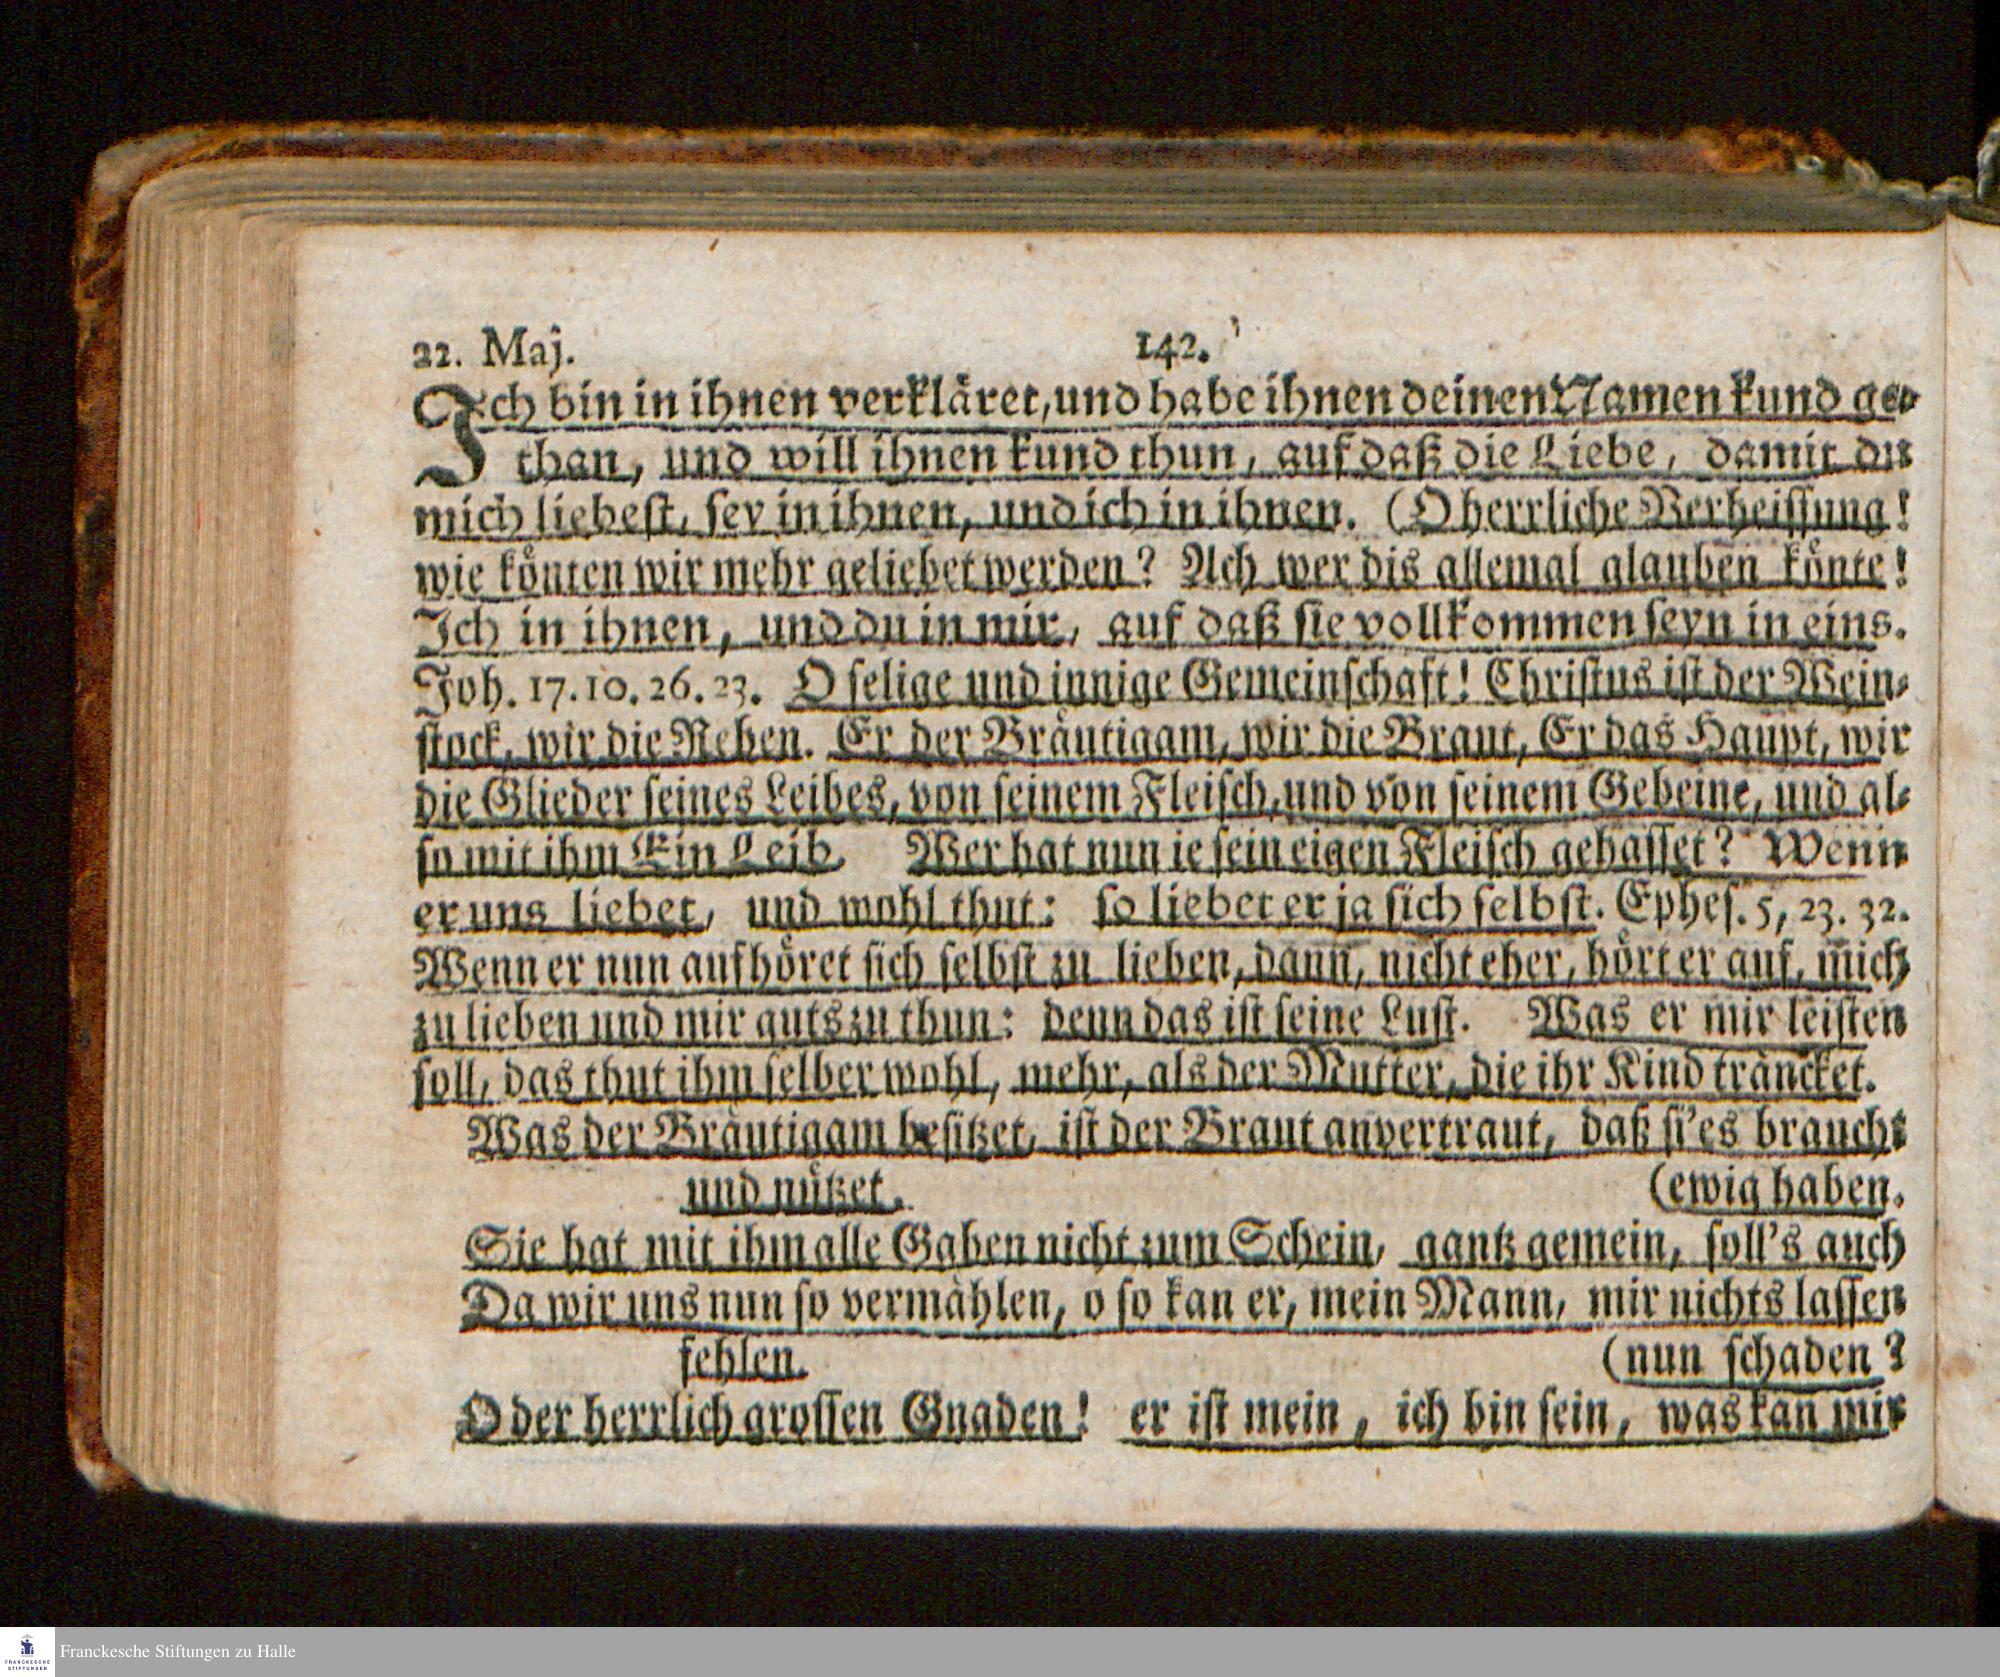 22. Maj.
142.
Ich bin in ihnen verkläret, und habe ihnen deinen Namen kund ge-
than, und will ihnen kund thun, auf daß die Liebe, damit du
mich liebest, sey in ihnen, und ich in ihnen. (O herrliche Verheissung!
wie könten wir mehr geliebet werden? Ach wer dis allemal glauben könte!
Ich in ihnen, und du in mir, auf daß sie vollkommen seyn in eins.
Joh. 17. 10. 26. 23. O selige und innige Gemeinschaft! Christus ist der Wein-
stock, wir die Reben. Er der Bräutigam, wir die Braut, Er das Haupt, wir
die Glieder seines Leibes, von seinem Fleisch, und von seinem Gebeine, und al-
so mit ihm Ein Leib. Wer hat nun ie sein eigen Fleisch gehasset? Wenn
er uns liebet, und wohl thut: so liebet er ja sich selbst. Ephes. 5, 23. 32.
Wenn er nun aufhöret sich selbst zu lieben, dann, nicht eher, hört er auf, mich
zu lieben und mir guts zu thun: denn das ist seine Lust. Was er mir leisten
soll, das thut ihm selber wohl, mehr, als der Mutter, die ihr Kind träncket.
Was der Bräutigam besitzet, ist der Braut anvertraut, daß si'es braucht
und nützet. (ewig haben.
Sie hat mit ihm alle Gaben nicht zum Schein, gantz gemein, soll's auch
Da wir uns nun so vermählen, o so kan er, mein Mann, mir nichts lassen
fehlen. (nun schaden?
O der herrlich grossen Gnaden! er ist mein, ich bin sein, was kan mir
FRANCKESCHE
STIFTUNGEN
Franckesche Stiftungen zu Halle